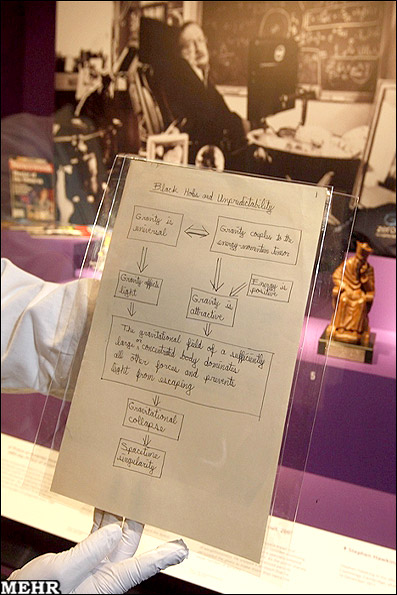 Black Holes and Unpredictability
1
Gravity is
universal
Gravity couples to the
energy-momentum tensor
Gravity affects
light
Gravity is
attractive
Energy is
positive
The gravitational field of a sufficiently
large or concentrated body dominates
all other forces and prevents
light from escaping
Gravitational
collapse
Spacetime
singularity
5
Stephen Hawking
MEHR